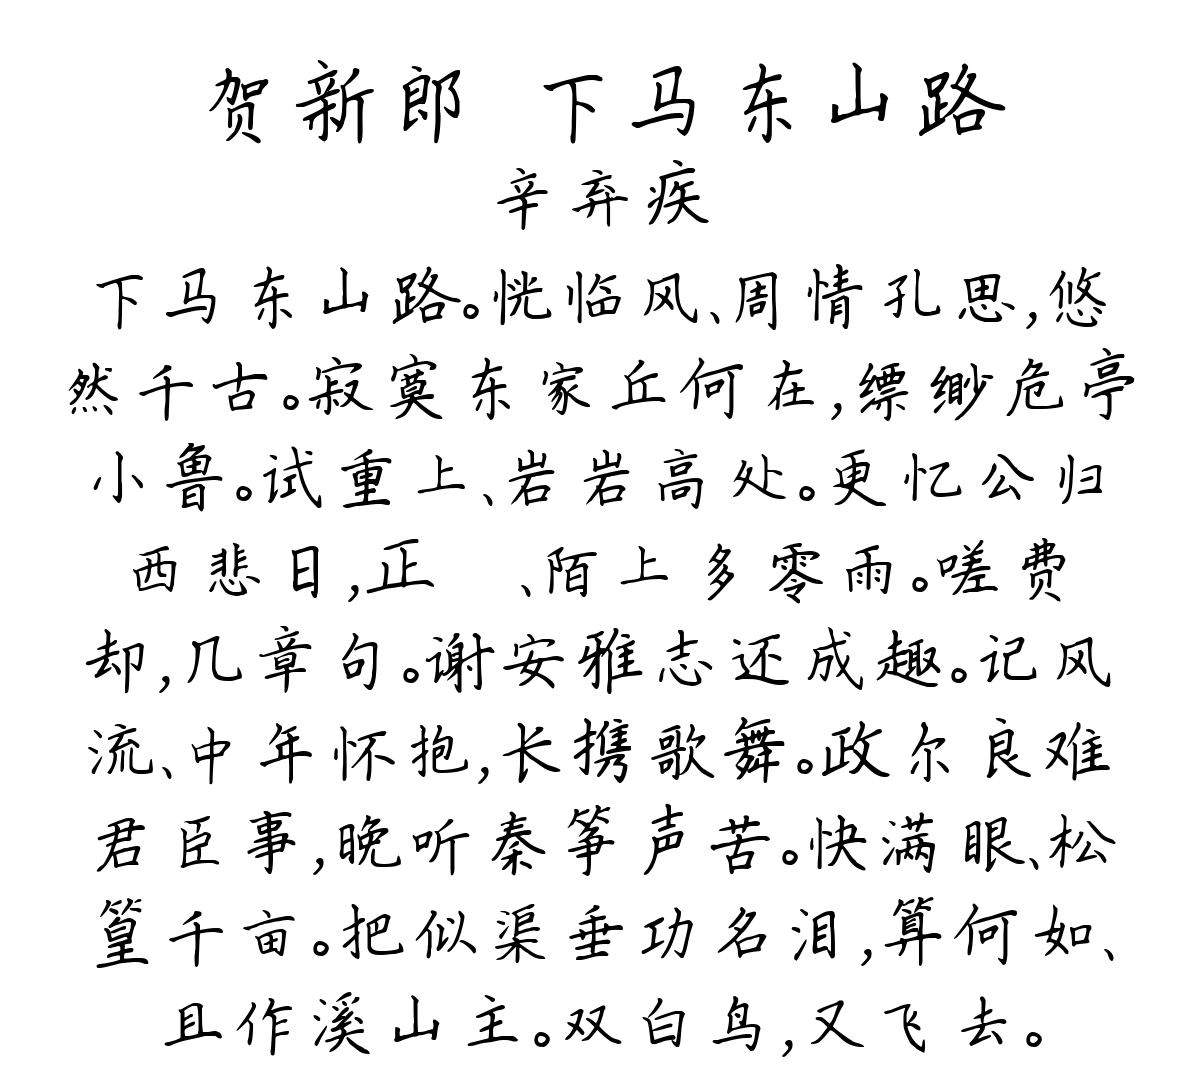 贺新郎 下马东山路
辛弃疾
下马东山路。恍临风、周情孔思,悠
然千古。寂寞东家丘何在,缥缈危亭
小鲁。试重上、岩岩高处。更忆公归
西悲日,正 、陌上多零雨。嗟费
却,几章句。谢安雅志还成趣。记风
流、中年怀抱,长携歌舞。政尔良难
君臣事,晚听秦筝声苦。快满眼、松
篁千亩。把似渠垂功名泪,算何如、
且作溪山主。双白鸟,又飞去。